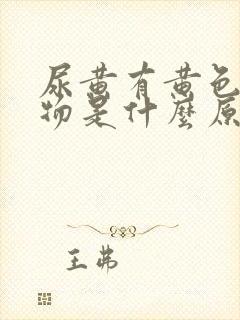 尿黄有黄色
物是什麼原
王弗